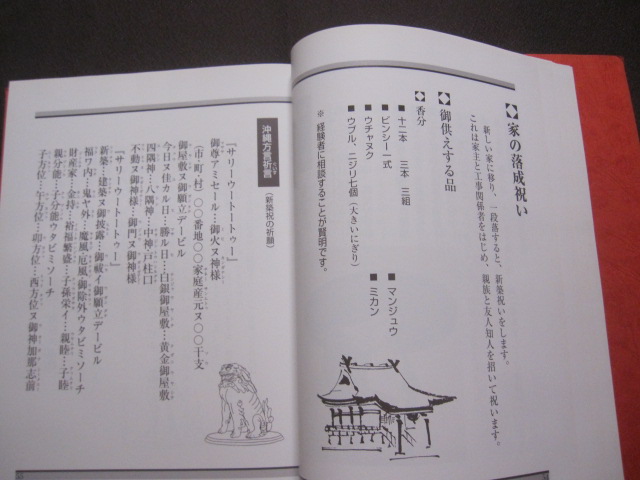 家の落成祝い
新しい家に移り、一段落すると、新築祝いをします。
これは家主と工事関係者をはじめ、親族と友人知人を招いて祝います。
御供えする品
香分
■十二本 三本 三組
■ビンシー一式
■ウチャヌク
■ウブル、ニジリ七個(大きいにぎり)
■マンジュウ
■ミカン
※経験者に相談することが賢明です。
沖縄方言祈言
(新築祝の祈願)
『サリーウートートゥー』
御尊アミセール…御火ヌ神様
(市・町・村)○○番地○○家庭産元ヌ○○干支
御屋敷ヌ御願立デービル
今日ヌ佳カル日…勝ル日…白銀御屋敷…黄金御屋敷
四隅神…八隅神…中神戸柱口
不動ヌ御神様…御門ヌ御神様
『サリーウートートゥー』
新築…建築ヌ御披露…御祓イ御願立デービル
福ワ内…鬼ヤ外…魔風厄風御除外ウタビミソーチ
財産家…金持…裕福繁盛…子孫栄イ…親睦…子睦
親分能…子分能ウタビミソーチ
子方位…午方位…卯方位…酉方位ヌ御神加那志前